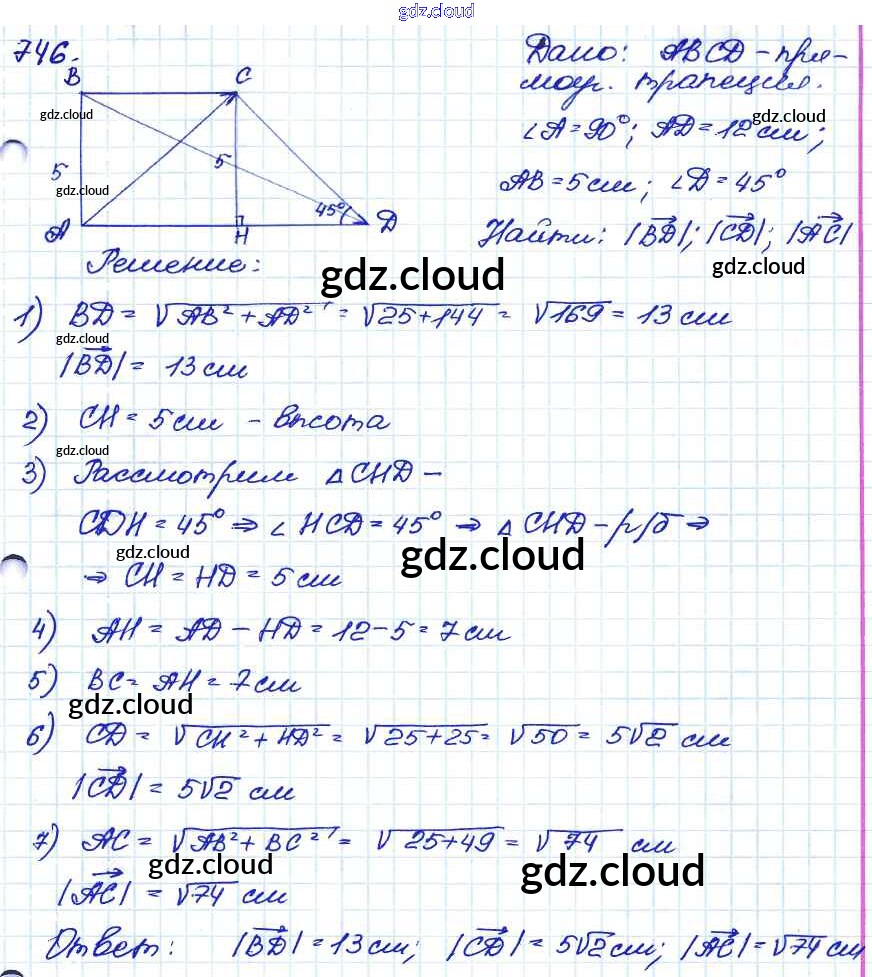 gdz.cloud
746.
B
C
gdz.cloud
5
5
gdz.cloud
45°
A
H
D
Дано: ABCD - пря-
моуг. трапеция.
gdz.cloud
∠A = 90°; AD = 12 см;
AB = 5 см; ∠D = 45°
Найти: |BD|; |CD|; |AC|
gdz.cloud
Решение:
gdz.cloud
1) BD = √AB² + AD² = √25 + 144 = √169 = 13 см
gdz.cloud
|BD| = 13 см
2) CH = 5 см - высота
gdz.cloud
3) Рассмотрим △CHD -
CDH = 45° ⇒ ∠HCD = 45° ⇒ △CHD - р/б ⇒
gdz.cloud
gdz.cloud
⇒ CH = HD = 5 см
4) AH = AD - HD = 12 - 5 = 7 см
5) BC = AH = 7 см
gdz.cloud
6) CD = √CH² + HD² = √25 + 25 = √50 = 5√2 см
|CD| = 5√2 см
7) AC = √AB² + BC² = √25 + 49 = √74 см
gdz.cloud
gdz.cloud
|AC| = √74 см
Ответ: |BD| = 13 см; |CD| = 5√2 см; |AC| = √74 см